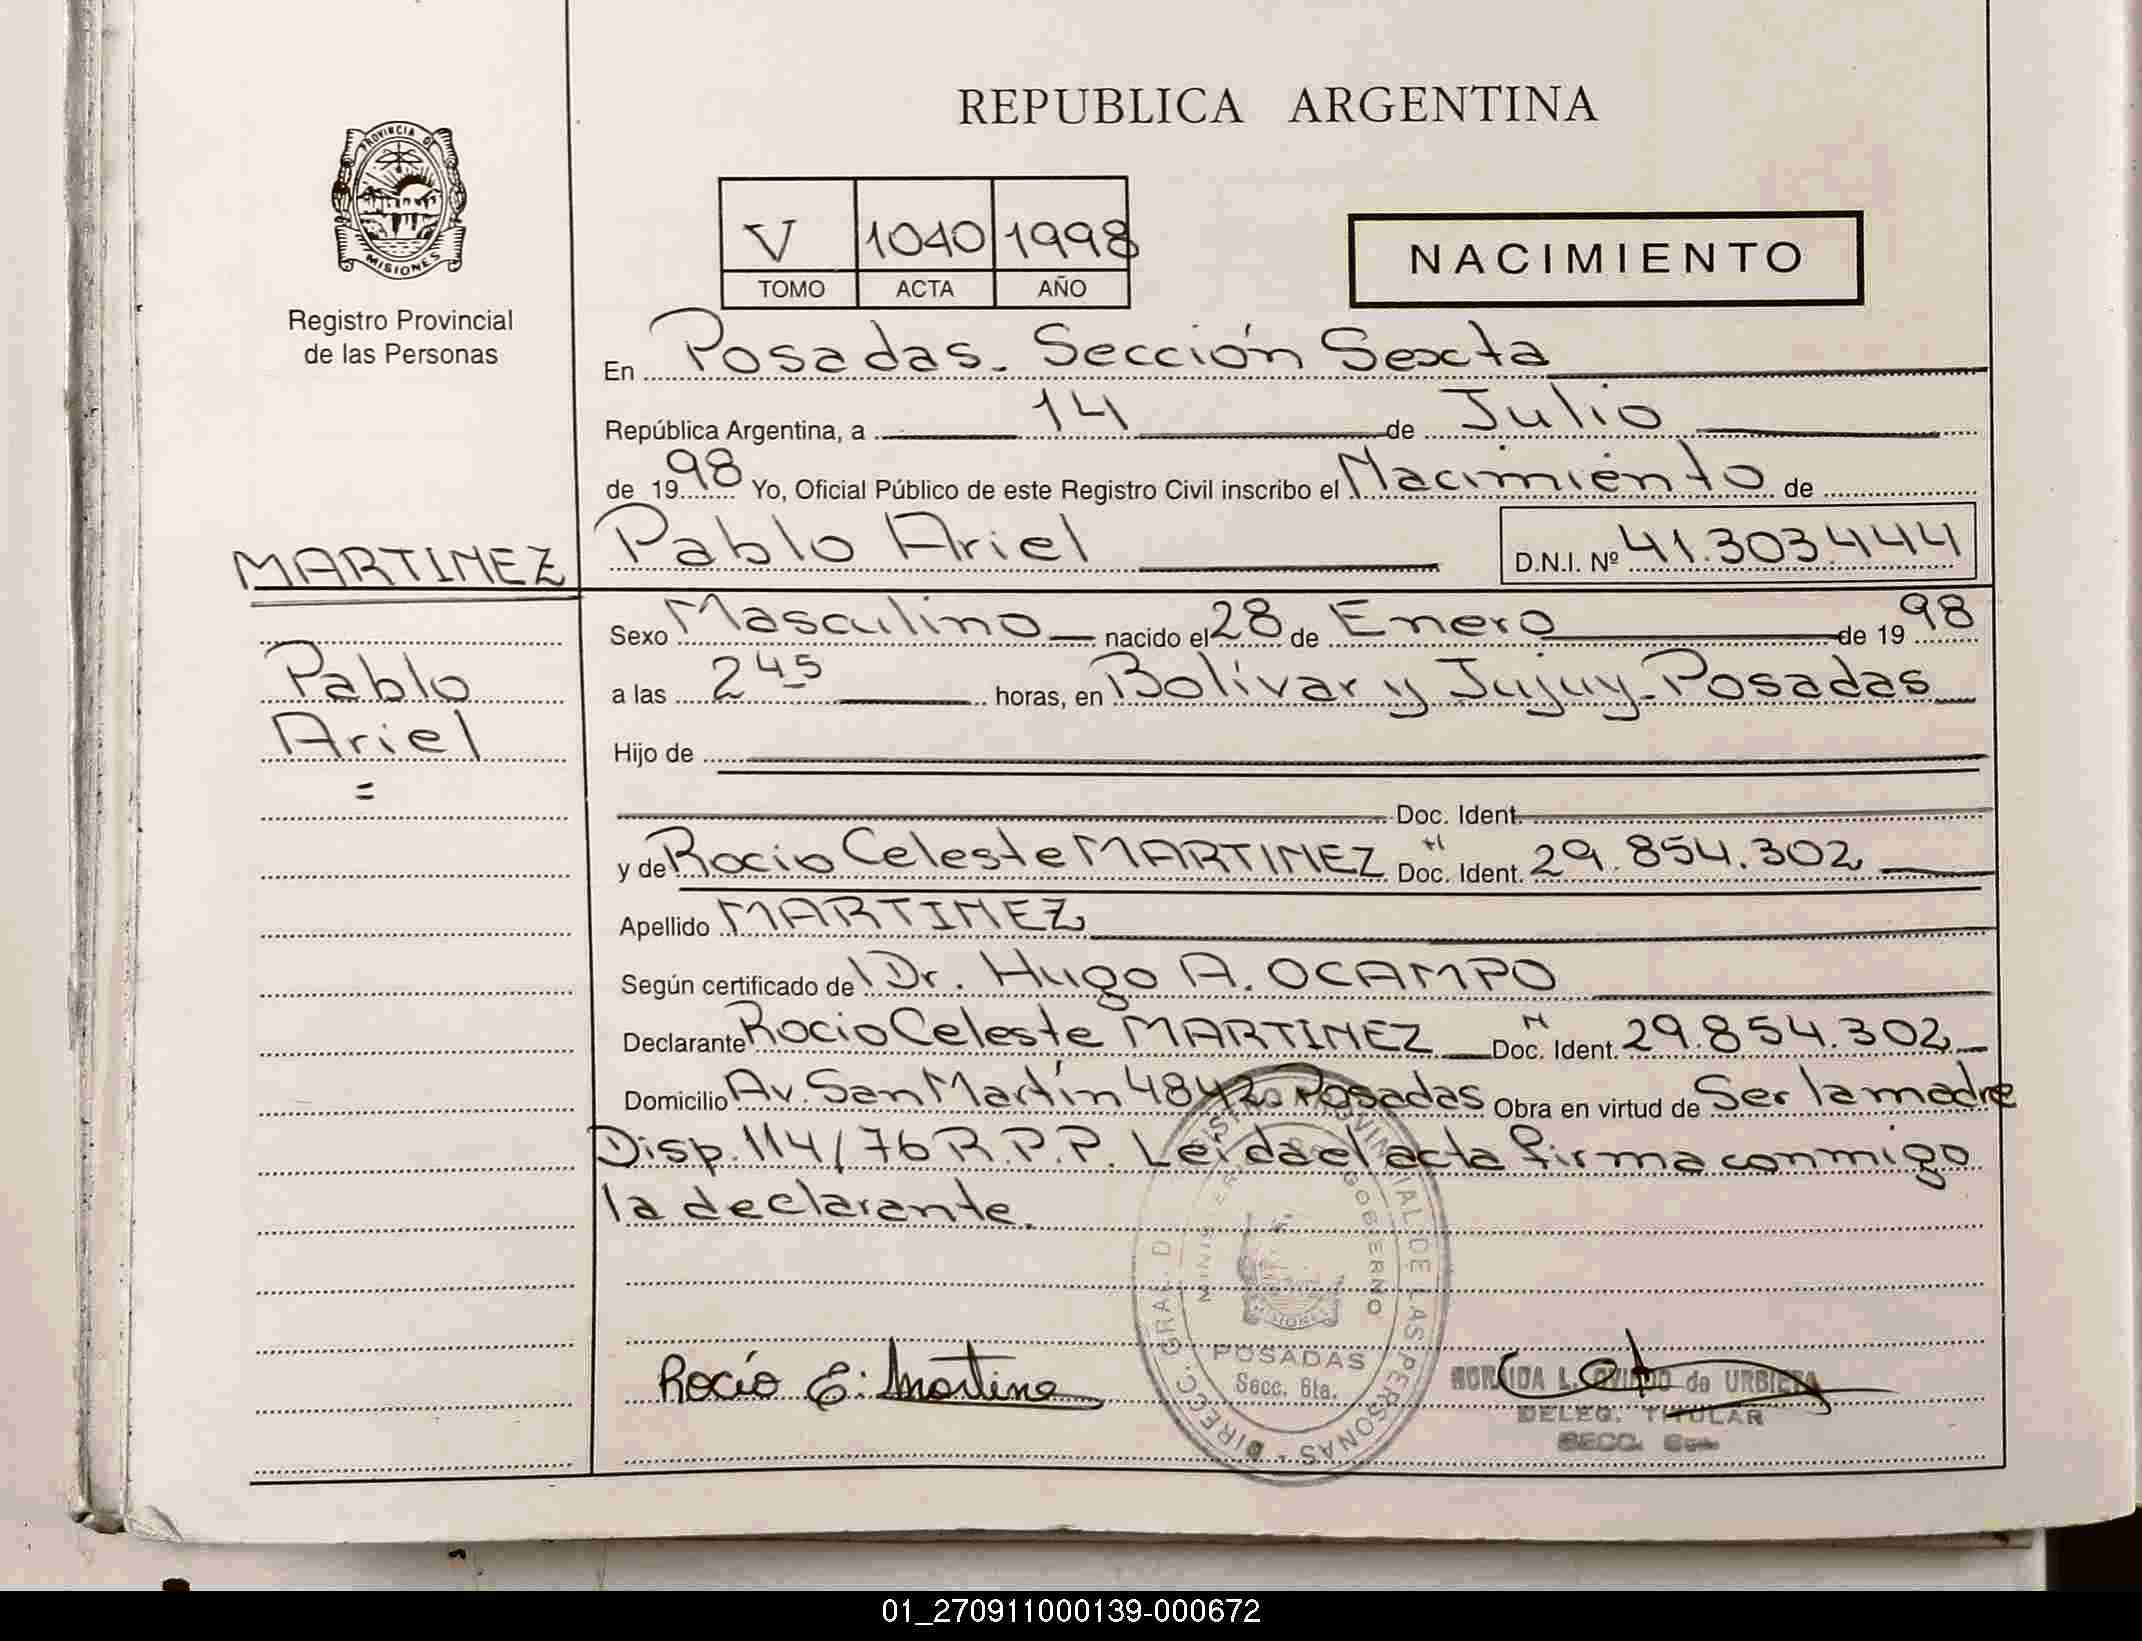 REPUBLICA ARGENTINA
PROVINCIA DE
MISIONES
Registro Provincial
de las Personas
V 1040 1998
TOMO ACTA AÑO
NACIMIENTO
En Posadas. Sección Sexta
República Argentina, a 14 de Julio
de 1998 Yo, Oficial Público de este Registro Civil inscribo el Nacimiento de
MARTINEZ
Pablo Ariel D.N.I. Nº 41.303.444
Pablo
Ariel
=
Sexo Masculino nacido el 28 de Enero de 1998
a las 2 45 horas, en Bolívar y Jujuy-Posadas
Hijo de
Doc. Ident.
y de Rocio Celeste MARTINEZ Doc. Ident. 29.854.302
Apellido MARTINEZ
Según certificado de Dr. Hugo A. OCAMPO
Declarante Rocio Celeste MARTINEZ Doc. Ident. 29.854.302
Domicilio Av. San Martín 4842 Posadas Obra en virtud de Ser la madre
Disp. 114/76 R.P.P. Leída el acta firma conmigo
la declarante.
DIRECC. GRAL. DE REGISTRO PROVINCIAL DE LAS PERSONAS
MINISTERIO GOBIERNO
POSADAS
Secc. 6ta.
Rocío E. Martine
L. OVIEDO de URBIETA
DELEG. TITULAR
SECC. 6ta.
01_270911000139-000672